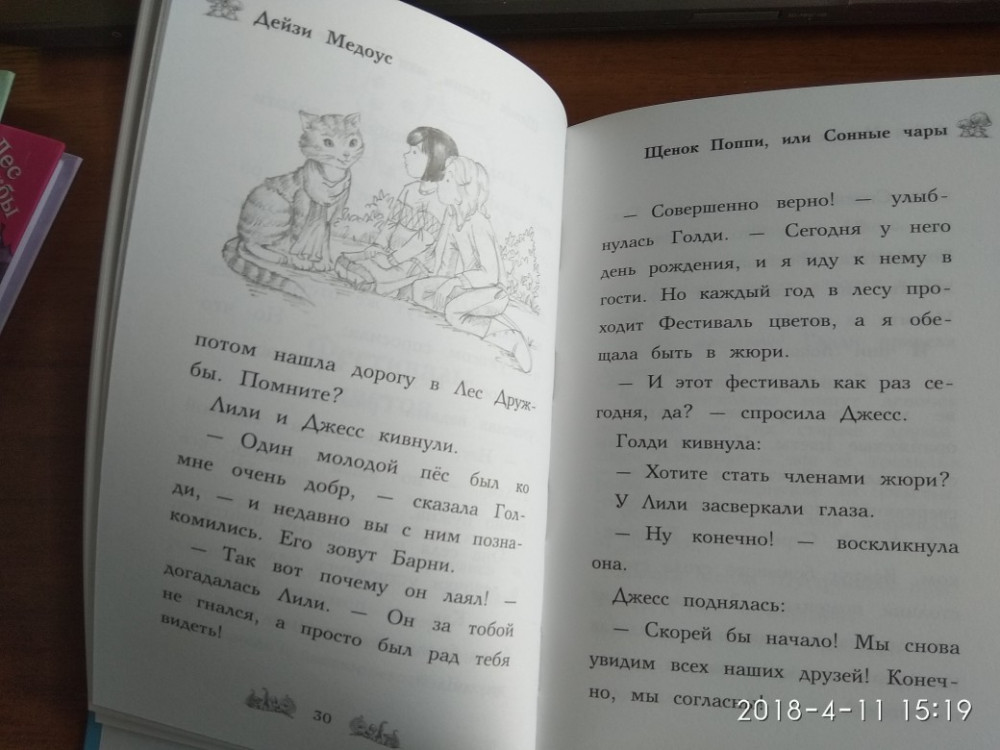 Лес
жбы
Дейзи Медоус
потом нашла дорогу в Лес Друж-
бы. Помните?
Лили и Джесс кивнули.
— Один молодой пёс был ко
мне очень добр, — сказала Гол-
ди, — и недавно вы с ним позна-
комились. Его зовут Барни.
— Так вот почему он лаял! —
догадалась Лили. — Он за тобой
не гнался, а просто был рад тебя
видеть!
30
Щенок Поппи, или Сонные чары
— Совершенно верно! — улыб-
нулась Голди. — Сегодня у него
день рождения, и я иду к нему в
гости. Но каждый год в лесу про-
ходит Фестиваль цветов, а я обе-
щала быть в жюри.
— И этот фестиваль как раз се-
годня, да? — спросила Джесс.
Голди кивнула:
— Хотите стать членами жюри?
У Лили засверкали глаза.
— Ну конечно! — воскликнула
она.
Джесс поднялась:
— Скорей бы начало! Мы снова
увидим всех наших друзей! Конеч-
но, мы согласны!
2018-4-11 15:19